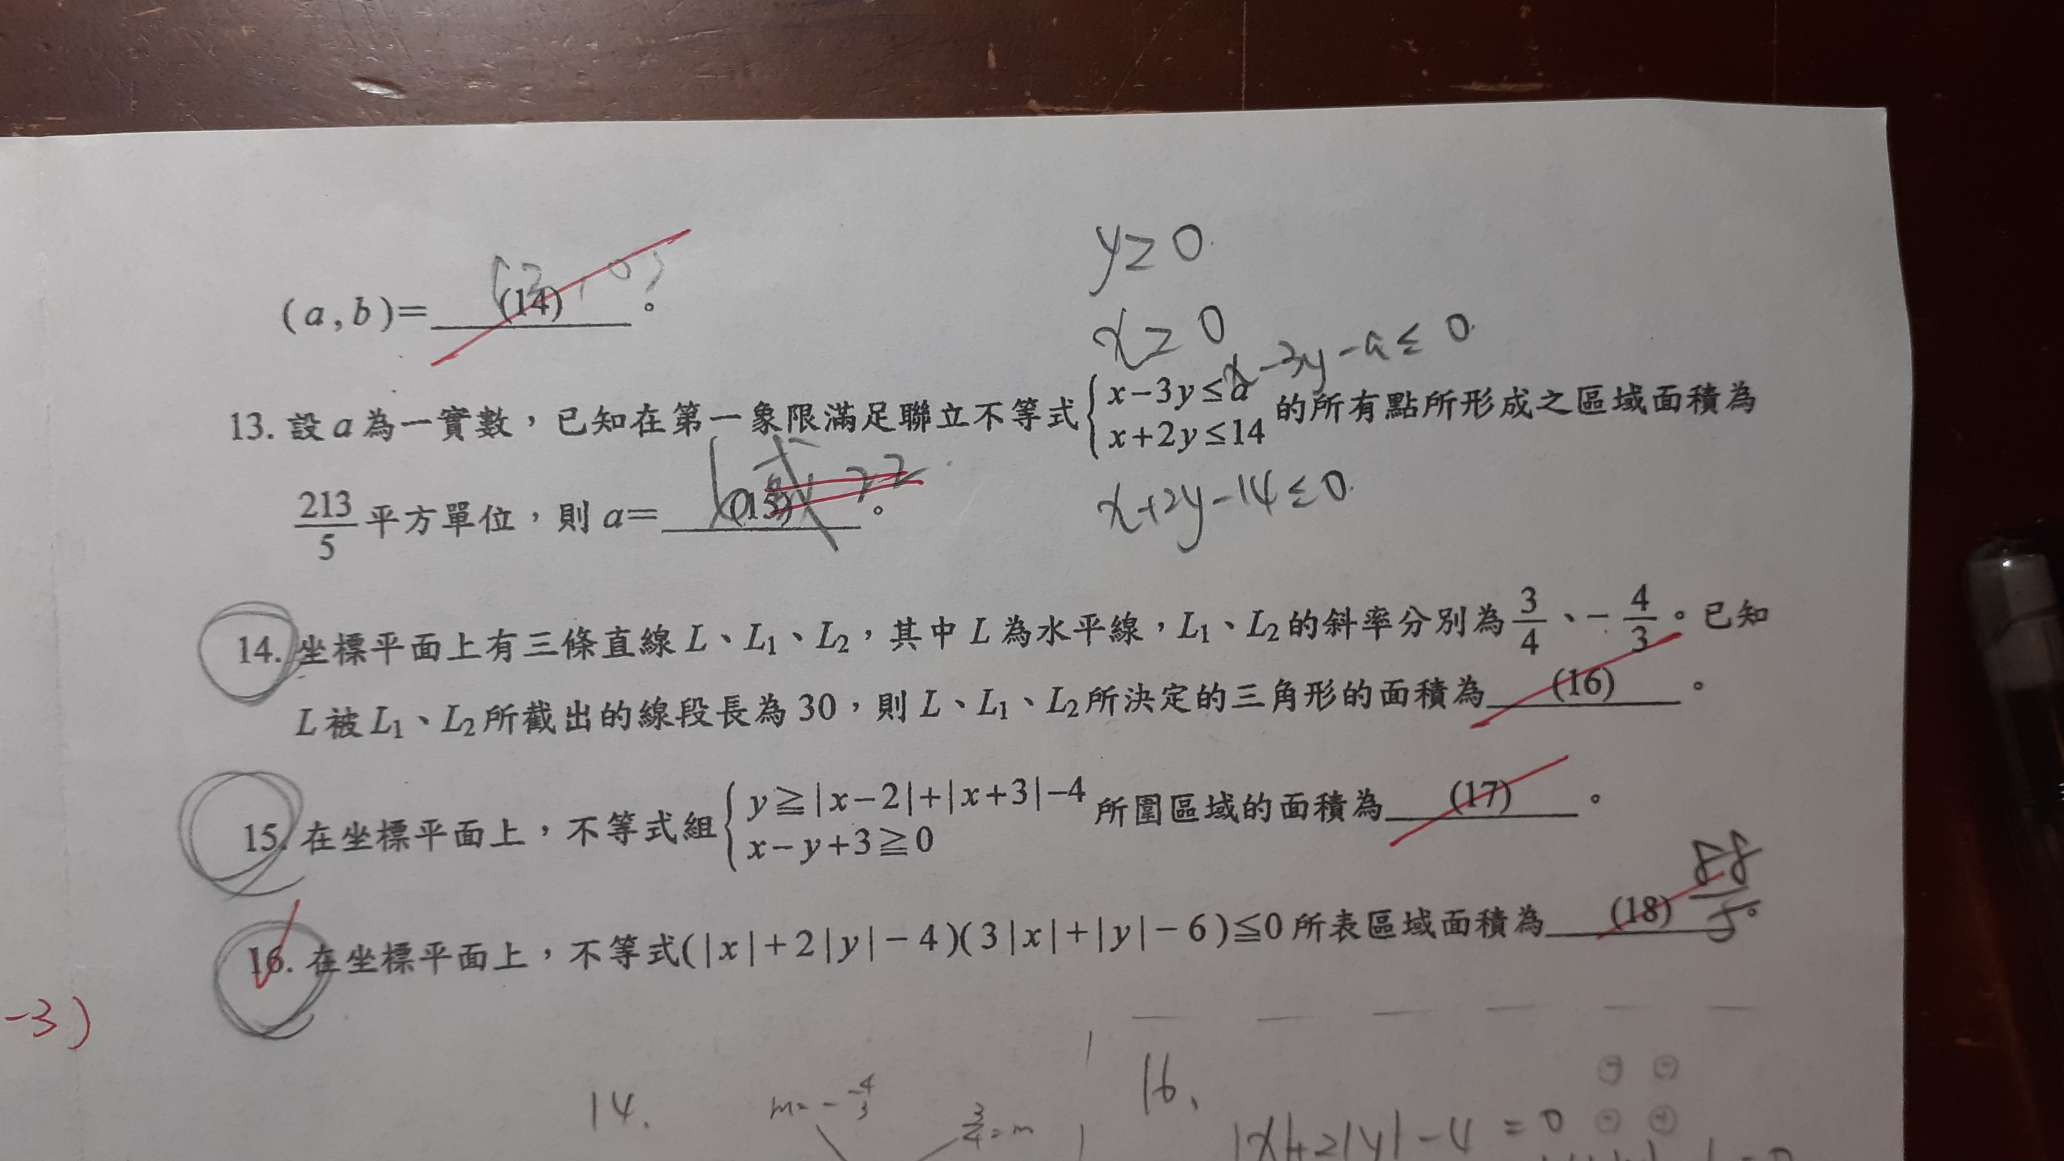 y≥0
(a,b)=(14)。
x≥0
x-3y-a≤0
13. 設a為一實數，已知在第一象限滿足聯立不等式{x-3y≤a x+2y≤14的所有點所形成之區域面積為
213/5平方單位，則a=(15)。
x+2y-14≤0
14. 坐標平面上有三條直線L、L₁、L₂，其中L為水平線，L₁、L₂的斜率分別為3/4、-4/3。已知
L被L₁、L₂所截出的線段長為30，則L、L₁、L₂所決定的三角形的面積為(16)。
15. 在坐標平面上，不等式組{y≧|x-2|+|x+3|-4 x-y+3≧0所圍區域的面積為(17)。
88/5
16. 在坐標平面上，不等式(|x|+2|y|-4)(3|x|+|y|-6)≦0所表區域面積為(18)。
-3)
14.
m=-4/3
3/4=m
16.
|x|+2|y|-4=0